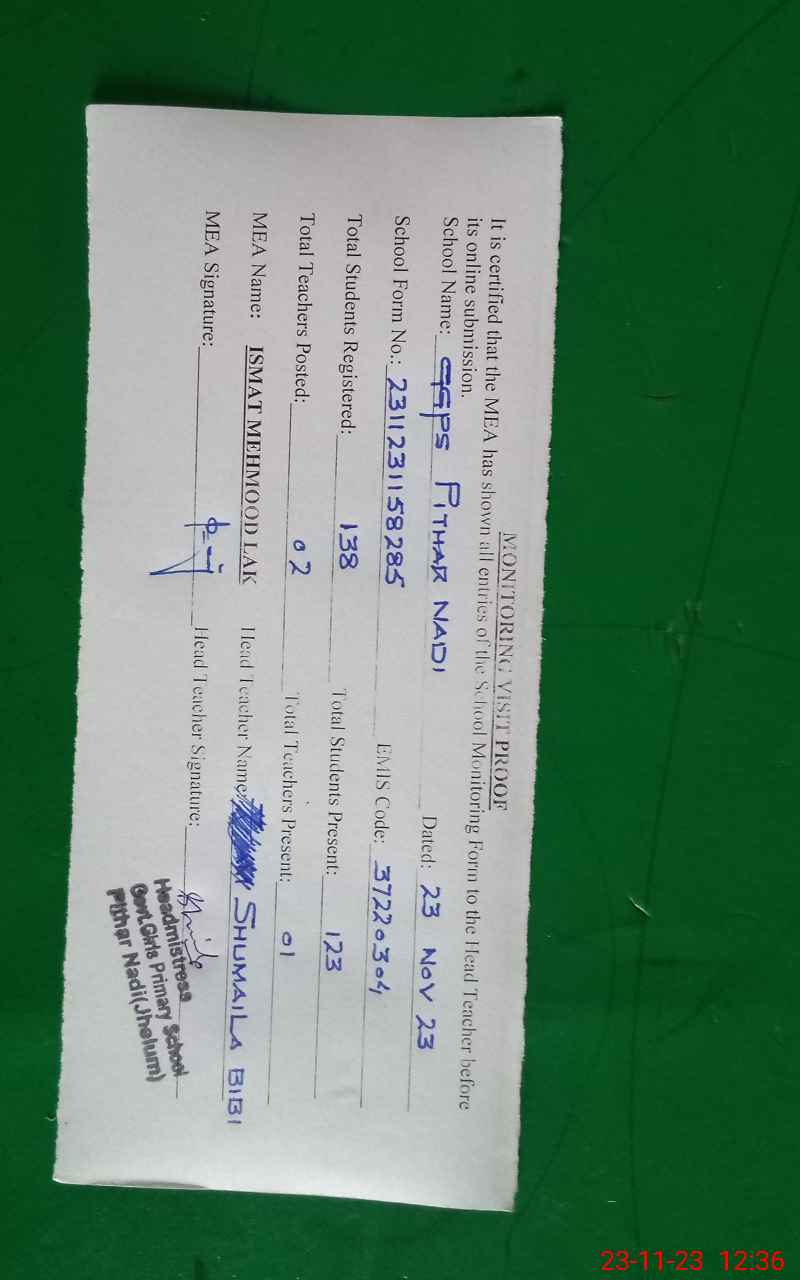 MONITORING VISIT PROOF
It is certified that the MEA has shown all entries of the School Monitoring Form to the Head Teacher before
its online submission.
School Name: GGPS PITHAR NADI Dated: 23 NOV 23
School Form No.: 2311231158285 EMIS Code: 37220304
Total Students Registered: 138 Total Students Present: 123
Total Teachers Posted: 02 Total Teachers Present: 01
MEA Name: ISMAT MEHMOOD LAK Head Teacher Name: SHUMAILA BIBI
MEA Signature: Head Teacher Signature:
Headmistress
Govt. Girls Primary School
Pithar Nadi(Jhelum)
23-11-23 12:36